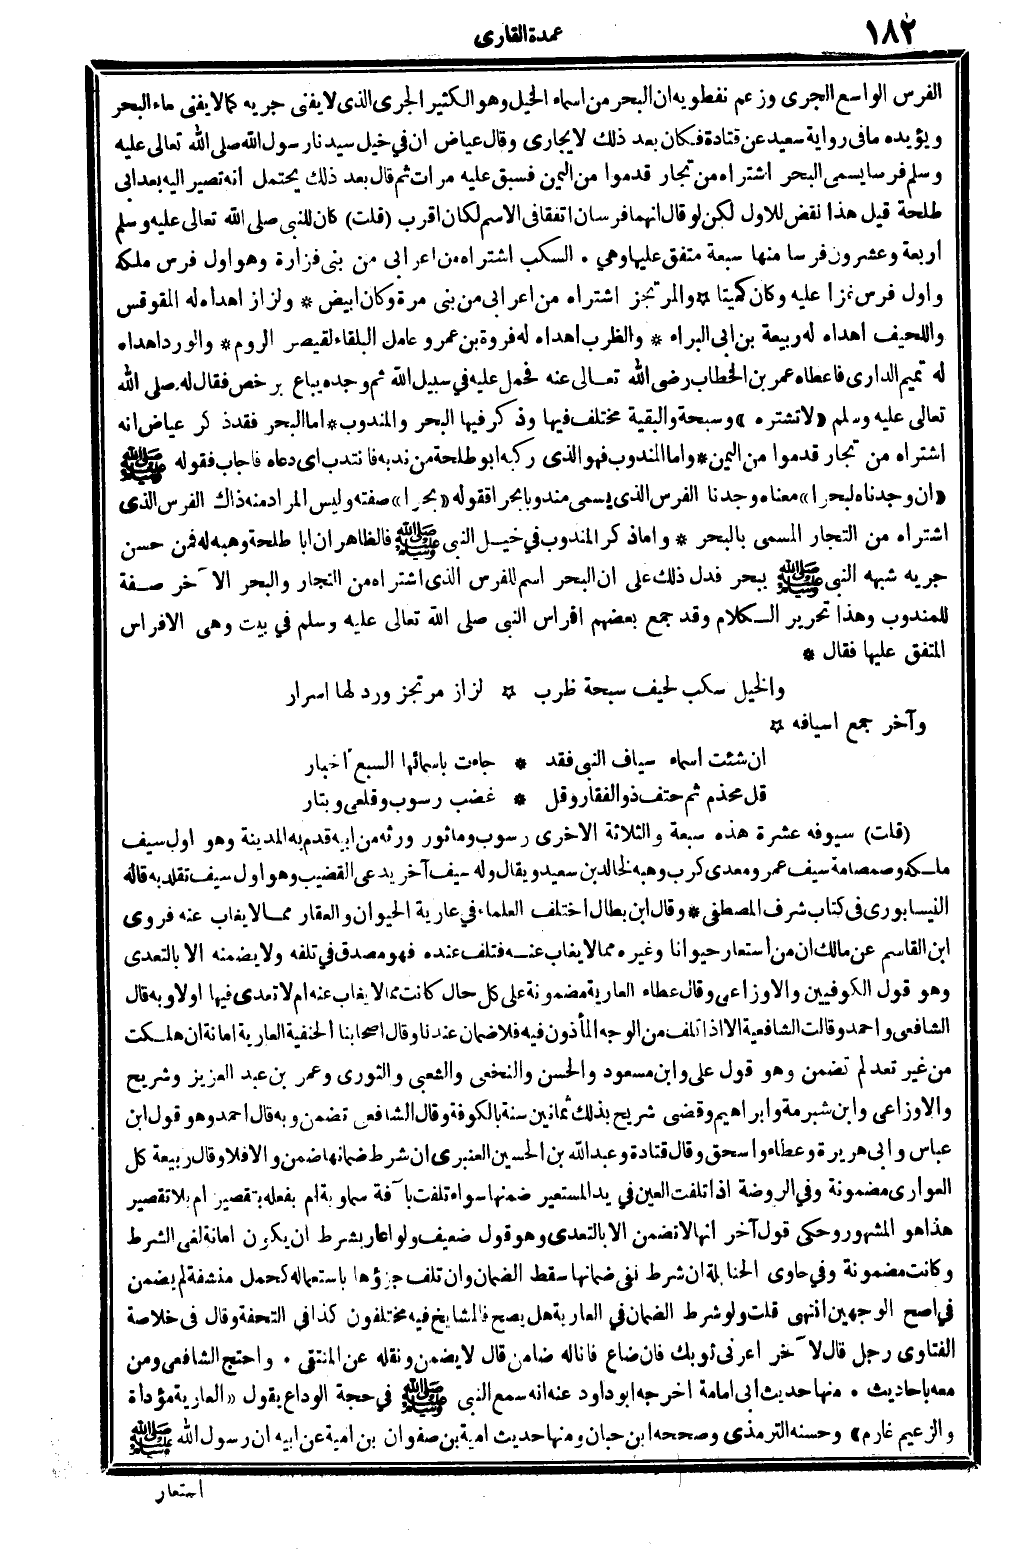 ١٨٢
عمدة القارى
الفرس الواسع الجرى وزعم نفطويه ان البحر من اسماء الخيل وهو الكثير الجرى الذى لا يفنى جريه كما لا يفنى ماء البحر
ويؤيده ما فى رواية سعيد عن قتادة فكان بعد ذلك لا يجارى وقال عياض ان في خيل سيدنا رسول الله صلى الله تعالى عليه
وسلم فرسا يسمى البحر اشتراه من تجار قدموا من اليمن فسبق عليه مرات ثم قال بعد ذلك يحتمل انه تصير اليه بعد ابى
طلحة قيل هذا نقض للاول لكن لو قال انهما فرسان اتفقا فى الاسم لكان اقرب (قلت) كان للنبى صلى الله تعالى عليه وسلم
اربعة وعشرون فرسا منها سبعة متفق عليها وهي • السكب اشتراه من اعرابى من بنى فزارة وهو اول فرس ملكه
واول فرس غزا عليه وكان كميتا ☆ والمرتجز اشتراه من اعرابى من بنى مرة وكان ابيض * ولزاز اهداه له المقوقس
واللحيف اهداه له ربيعة بن ابى البراء * والظرب اهداه له فروة بن عمرو عامل البلقاء لقيصر الروم * والورد اهداه
له تميم الدارى فاعطاه عمر بن الخطاب رضى الله تعـالى عنه فحمل عليه في سبيل الله ثم وجده يباع برخص فقال له صلى الله
تعالى عليه وسلم «لا تشتره» وسبحة والبقية مختلف فيها وذكر فيها البحر والمندوب * اما البحر فقد ذكر عياض انه
اشتراه من تجار قدموا من اليمن * واما المندوب فهو الذى ركبه ابو طلحة من ندبه فانتدب اى دعاه فاجاب فقوله ﷺ
«ان وجدناه لبحرا» معناه وجدنا الفرس الذى يسمى مندوبا بحرا فقوله «بحرا» صفته وليس المراد منه ذاك الفرس الذى
اشتراه من التجار المسمى بالبحر * واما ذكر المندوب في خيـل النبى ﷺ فالظاهر ان ابا طلحة وهبه له فمن حسن
جريه شبهه النبى ﷺ ببحر فدل ذلك على ان البحر اسم للفرس الذى اشتراه من التجار والبحر الآخر صـفة
للمندوب وهذا تحرير الـكلام وقد جمع بعضهم افراس النبى صلى الله تعالى عليه وسلم في بيت وهى الافراس
المتفق عليها فقال *
والخيل سكب لحيف سبحة ظرب ☆ لزاز مرتجز ورد لها اسرار
وآخر جمع اسيافه ☆
ان شئت أسماء سياف النبى فقد * جاءت باسمائها السبع أخبار
قل محذم ثم حتف ذو الفقار وقل * غضب رسوب وقلعى وبتار
(قلت) سيوفه عشرة هذه سبعة والثلاثة الاخرى رسوب وماثور ورثه من ابيه قدم به المدينة وهو اول سيف
ملـكه وصمصامة سيف عمرو معدى كرب وهبه لخالد بن سعيد ويقال وله سيف آخر يدعى القضيب وهو اول سيف تقلد به قاله
النيسابورى فى كتاب شرف المصطفى * وقال ابن بطال اختلف العلماء في عارية الحيوان والعقار ممـا لا يغاب عنه فروى
ابن القاسم عن مالك ان من أستعار حيوانا وغيره مما لا يغاب عنـه فتلف عنده فهو مصدق في تلفه ولا يضمنه الا بالتعدى
وهو قول الكوفيين والاوزاعى وقال عطاء العارية مضمونة على كل حال كانت مما لا يغاب عنه ام لا تعدى فيها اولا وبه قال
الشافعى واحمد وقالت الشافعية الا اذا تلف من الوجه المأذون فيه فلا ضمان عندنا وقال اصحابنا الحنفية العارية امانة ان هلـكت
من غير تعد لم تضمن وهو قول على وابن مسعود والحسن والنخعى والشعبى والثورى وعمر بن عبد العزيز وشريح
والاوزاعى وابن شبرمة وابراهيم وقضى شريح بذلك ثمانين سنة بالكوفة وقال الشافعى تضمن وبه قال احمد وهو قول ابن
عباس وابى هريرة وعطاء واسحق وقال قتادة وعبدالله بن الحسين العنبرى ان شرط ضمانها ضمن والا فلا وقال ربيعة كل
العوارى مضمونة وفي الروضة اذا تلفت العين في يد المستعير ضمنها سواء تلفت بآفة سماوية ام بفعله بتقصير ام بلا تقصير
هذا هو المشهور وحكى قول آخر انها لا تضمن الا بالتعدى وهو قول ضعيف ولو اعار بشرط ان يكون امانة لغى الشرط
وكانت مضمونة وفي حاوى الحنابلة ان شرط نفى ضمانها سقط الضمان وان تلف جزؤها باستعماله كحمل منشفة لم يضمن
في اصح الوجهين انتهى قلت ولو شرط الضمان في العارية هل يصح فالمشايخ فيه مختلفون كذا فى التحفة وقال فى خلاصة
الفتاوى رجل قال لآخر اعرنى ثوبك فان ضاع فاناله ضامن قال لا يضمن ونقله عن المنتقى • واحتج الشافعى ومن
معه باحاديث • منها حديث ابى امامة اخرجه ابو داود عنه انه سمع النبى ﷺ في حجة الوداع يقول «العارية مؤداة
والزعيم غارم» وحسنه الترمذى وصححه ابن حبان ومنها حديث امية بن صفوان بن امية عن ابيه ان رسول الله ﷺ
استعار